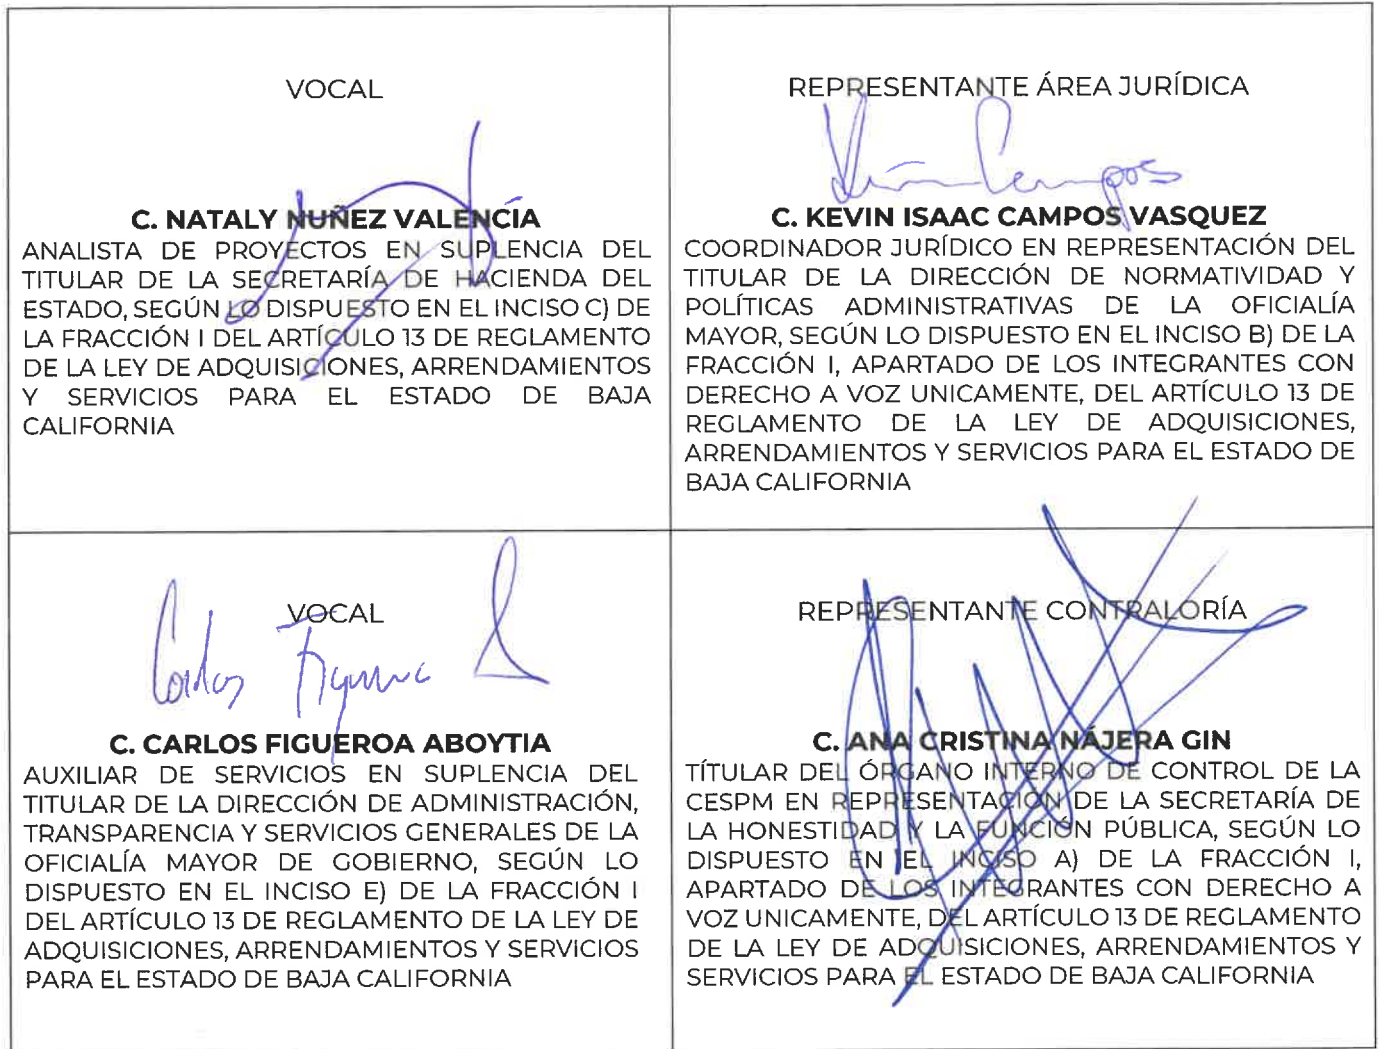 VOCAL
C. NATALY NUÑEZ VALENCÍA
ANALISTA DE PROYECTOS EN SUPLENCIA DEL
TITULAR DE LA SECRETARÍA DE HACIENDA DEL
ESTADO, SEGÚN LO DISPUESTO EN EL INCISO C) DE
LA FRACCIÓN I DEL ARTÍCULO 13 DE REGLAMENTO
DE LA LEY DE ADQUISICIONES, ARRENDAMIENTOS
Y SERVICIOS PARA EL ESTADO DE BAJA
CALIFORNIA
REPRESENTANTE ÁREA JURÍDICA
Kevin Campos
C. KEVIN ISAAC CAMPOS VASQUEZ
COORDINADOR JURÍDICO EN REPRESENTACIÓN DEL
TITULAR DE LA DIRECCIÓN DE NORMATIVIDAD Y
POLÍTICAS ADMINISTRATIVAS DE LA OFICIALÍA
MAYOR, SEGÚN LO DISPUESTO EN EL INCISO B) DE LA
FRACCIÓN I, APARTADO DE LOS INTEGRANTES CON
DERECHO A VOZ UNICAMENTE, DEL ARTÍCULO 13 DE
REGLAMENTO DE LA LEY DE ADQUISICIONES,
ARRENDAMIENTOS Y SERVICIOS PARA EL ESTADO DE
BAJA CALIFORNIA
VOCAL
Carlos Figueroa A
C. CARLOS FIGUEROA ABOYTIA
AUXILIAR DE SERVICIOS EN SUPLENCIA DEL
TITULAR DE LA DIRECCIÓN DE ADMINISTRACIÓN,
TRANSPARENCIA Y SERVICIOS GENERALES DE LA
OFICIALÍA MAYOR DE GOBIERNO, SEGÚN LO
DISPUESTO EN EL INCISO E) DE LA FRACCIÓN I
DEL ARTÍCULO 13 DE REGLAMENTO DE LA LEY DE
ADQUISICIONES, ARRENDAMIENTOS Y SERVICIOS
PARA EL ESTADO DE BAJA CALIFORNIA
REPRESENTANTE CONTRALORÍA
C. ANA CRISTINA NÁJERA GIN
TÍTULAR DEL ÓRGANO INTERNO DE CONTROL DE LA
CESPM EN REPRESENTACIÓN DE LA SECRETARÍA DE
LA HONESTIDAD Y LA FUNCIÓN PÚBLICA, SEGÚN LO
DISPUESTO EN EL INCISO A) DE LA FRACCIÓN I,
APARTADO DE LOS INTEGRANTES CON DERECHO A
VOZ UNICAMENTE, DEL ARTÍCULO 13 DE REGLAMENTO
DE LA LEY DE ADQUISICIONES, ARRENDAMIENTOS Y
SERVICIOS PARA EL ESTADO DE BAJA CALIFORNIA